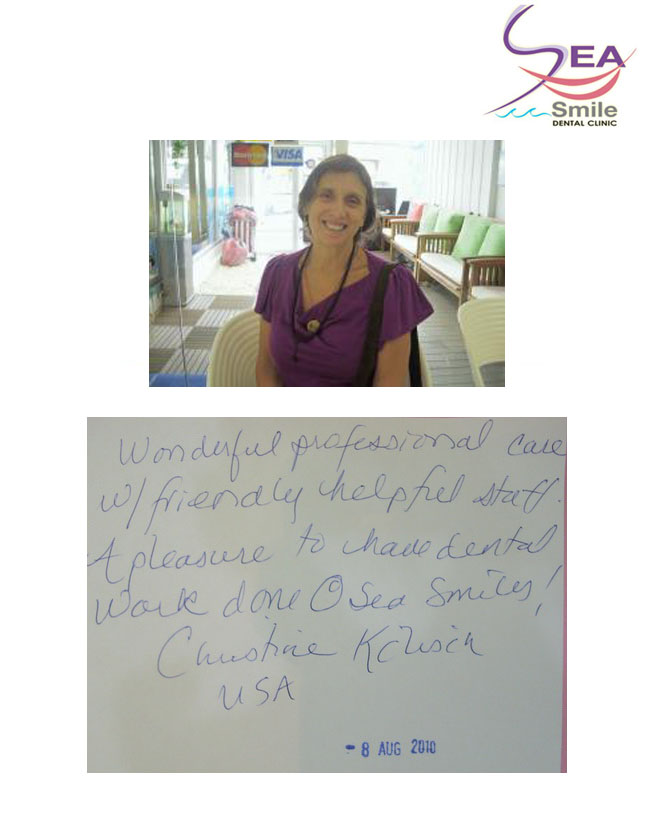 SEA
Smile
DENTAL CLINIC
MasterCard
VISA
Wonderful professional care
w/ friendly helpful staff.
A pleasure to have dental
work done @ Sea Smiles!
Christine
USA
- 8 AUG 2010